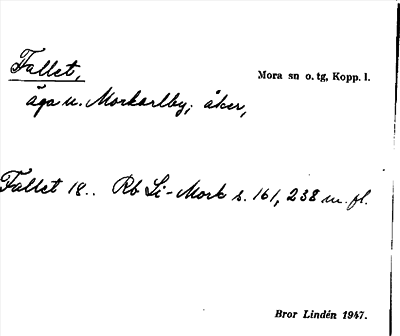 Fallet,
Mora sn o. tg, Kopp. l.
äga u. Morkarlby; åker,
Fallet 18.. Rb Si-Mork s. 161, 238 m. fl.
Bror Lindén 1947.